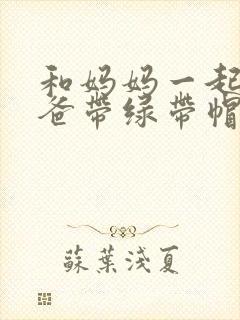 和妈妈一起
爸带绿带帽
蘇葉淺夏